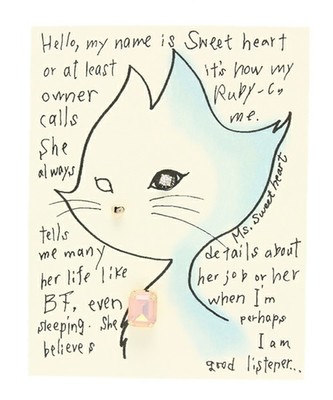 Hello, my name is Sweet heart
or at least it's how my
owner
calls me.
She
always
Ms. Sweet heart
tells
me many details about
her life like her job or her
BF, even when I'm
sleeping. She perhaps
believes I am
good listener...